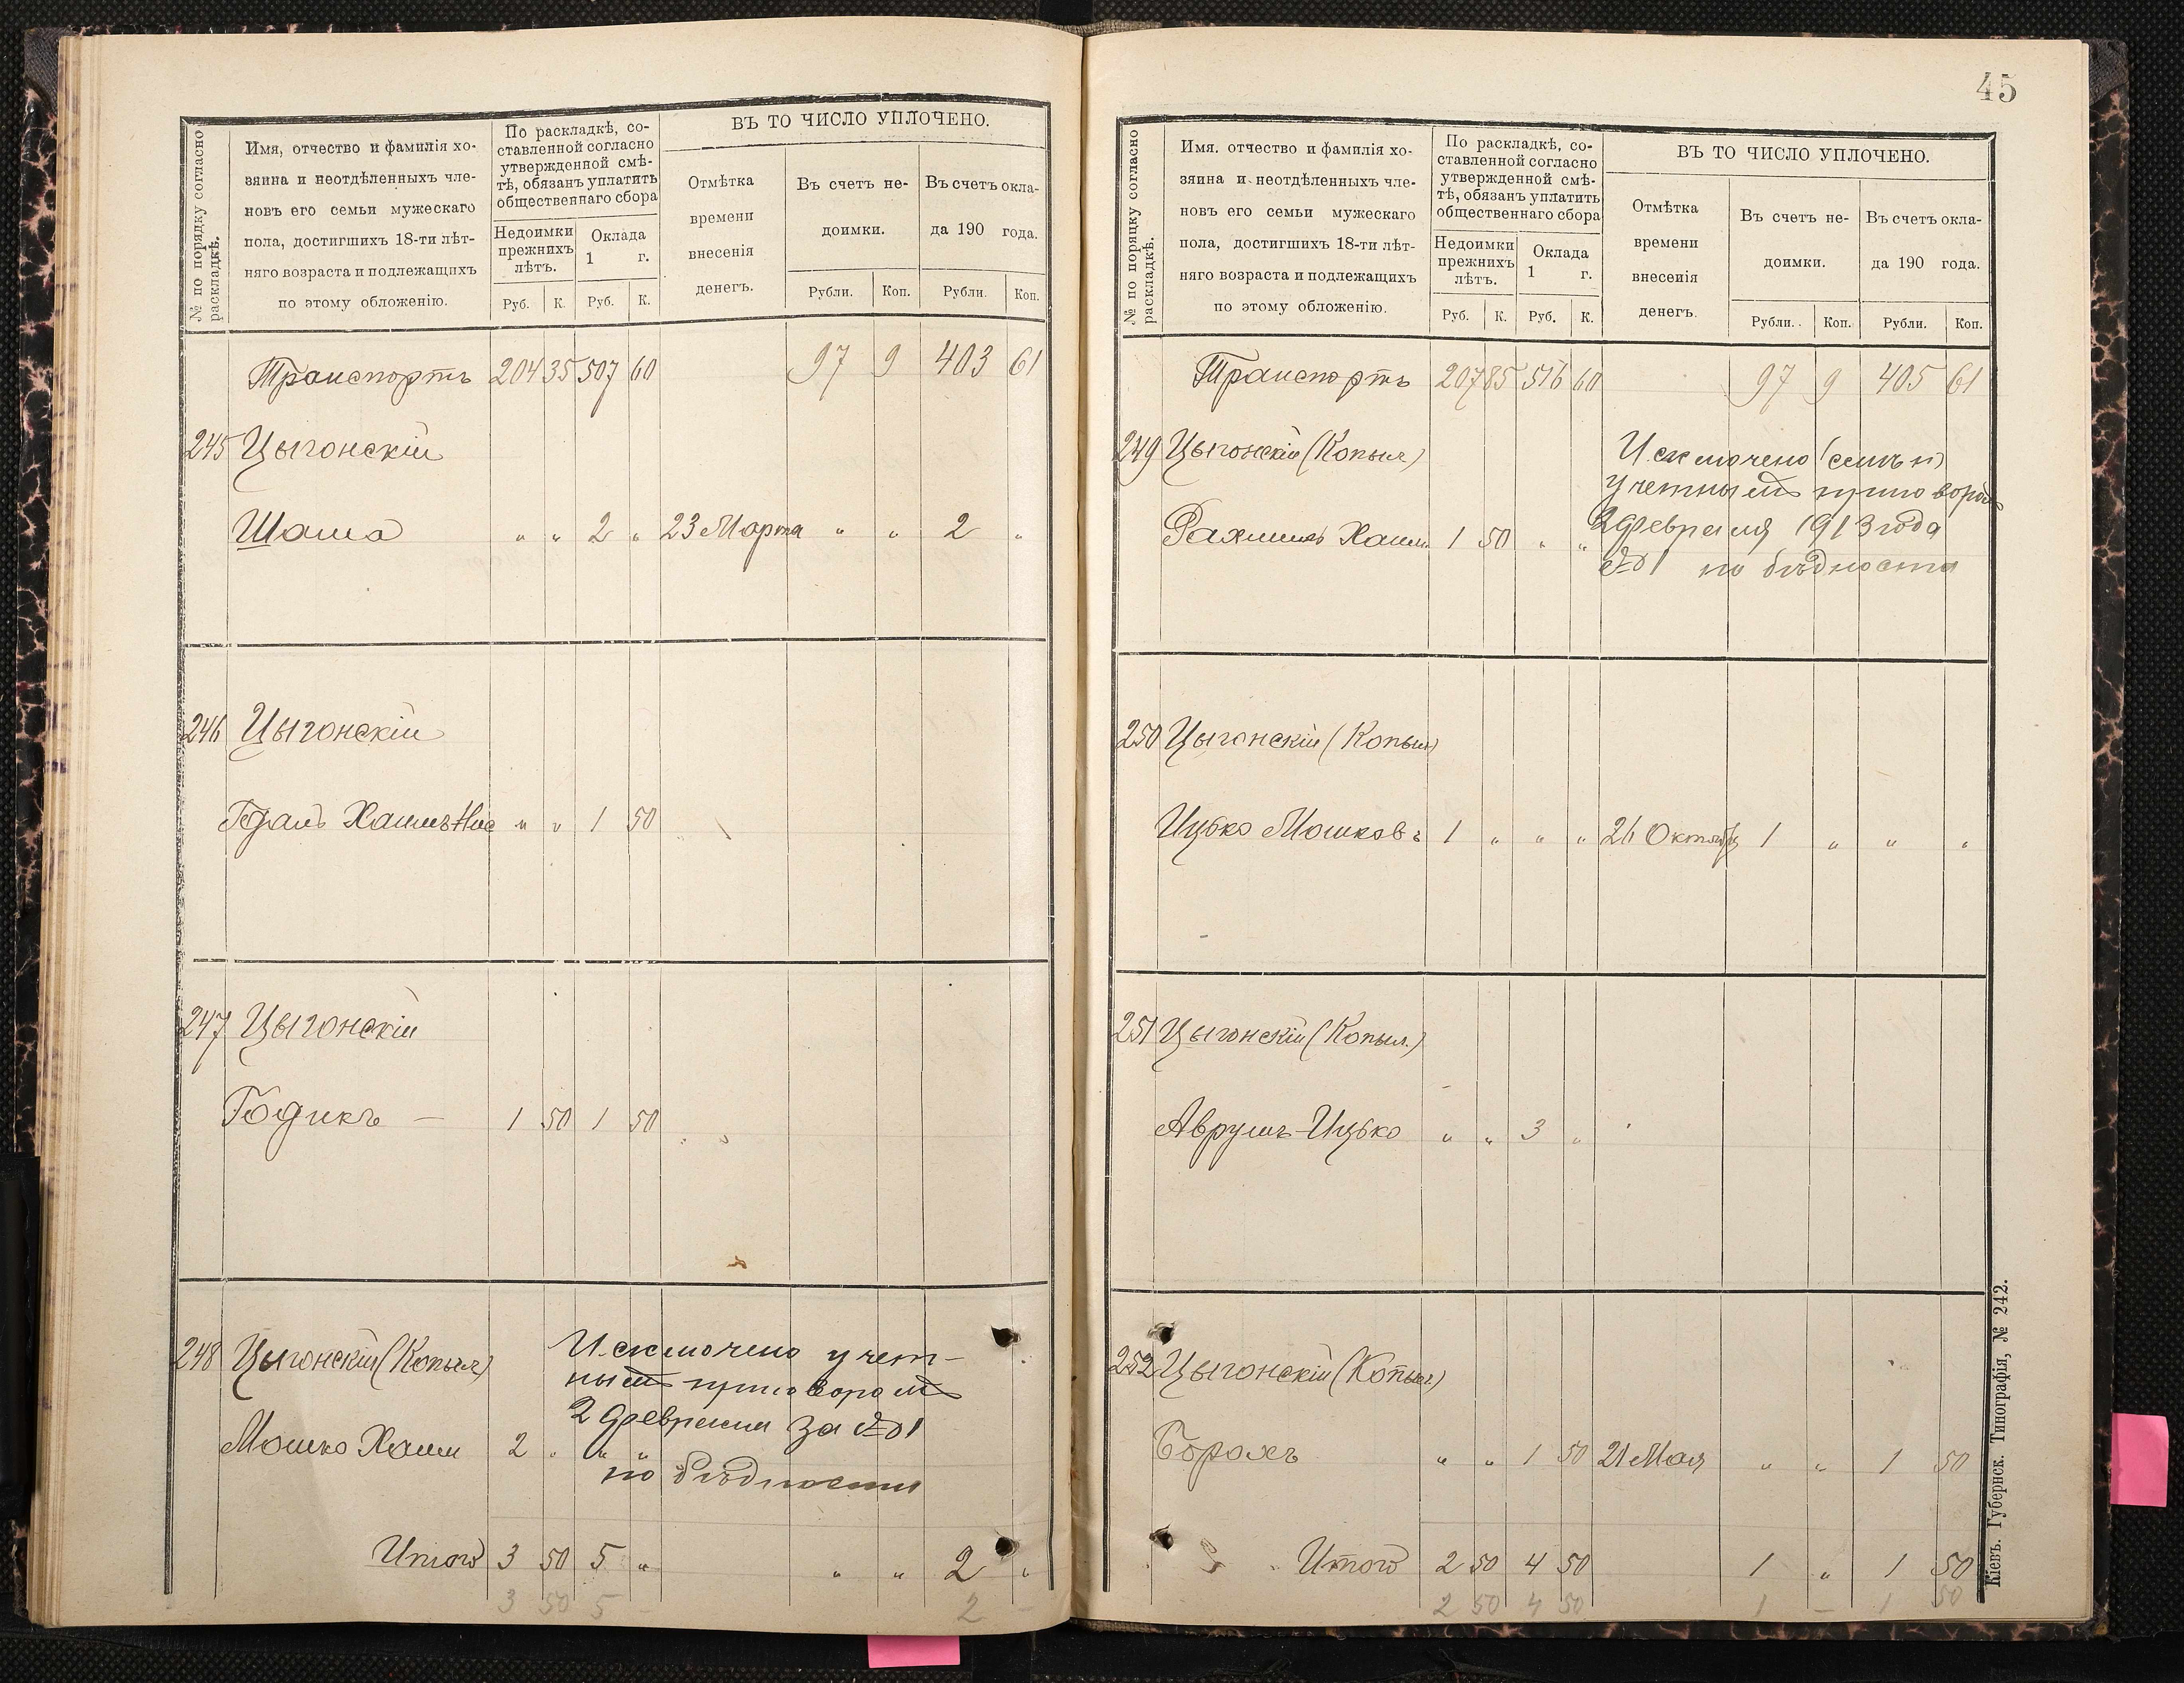 № по порядку согласно раскладкѣ.
Имя, отчество и фамилія хо-
зяина и неотдѣленныхъ чле-
новъ его семьи мужескаго
пола, достигшихъ 18-ти лѣт-
няго возраста и подлежащихъ
по этому обложенію.
По раскладкѣ, со-
ставленной согласно
утвержденной смѣ-
тѣ, обязанъ уплатить
общественнаго сбора
Недоимки
прежнихъ
лѣтъ.
Оклада
1 г.
Руб. К. Руб. К.
ВЪ ТО ЧИСЛО УПЛОЧЕНО.
Отмѣтка
времени
внесенія
денегъ.
Въ счетъ не-
доимки.
Въ счетъ окла-
да 190 года.
Рубли. Коп. Рубли. Коп.
Транспортъ 204 35 507 60 97 9 403 61
245 Цыгонскій
Шама „ „ 2 „ 23 Марта „ „ 2 „
246 Цыгонскій
Хаимъ „ „ 1 50
247 Цыгонскій
Годикъ — 1 50 1 50
248 Цыгонскій (Копыл)
Исключено учет-
нымъ приговоромъ
2 февраля за № 1
Мошко Хаим 2 „ „ „
по бѣдности
Итого 3 50 5 „ „ „ 2 „
3 50 5 — 2 —
45
№ по порядку согласно раскладкѣ.
Имя. отчество и фамилія хо-
зяина и неотдѣленныхъ чле-
новъ его семьи мужескаго
пола, достигшихъ 18-ти лѣт-
няго возраста и подлежащихъ
по этому обложенію.
По раскладкѣ, со-
ставленной согласно
утвержденной смѣ-
тѣ, обязанъ уплатить
общественнаго сбора
Недоимки
прежнихъ
лѣтъ.
Оклада
1 г.
Руб. К. Руб. К.
ВЪ ТО ЧИСЛО УПЛОЧЕНО.
Отмѣтка
времени
внесенія
денегъ.
Въ счетъ не-
доимки.
Въ счетъ окла-
да 190 года.
Рубли. Коп. Рубли. Коп.
Транспортъ 207 85 516 60 97 9 405 61
249 Цыгонскій (Копыл)
Исключено (семьи)
учетнымъ приговором
2 февраля 1913 года
№ 1 по бѣдности
Рахмиль Хаим. 1 50 „ „
250 Цыгонскій (Копыл)
Ицько Мошковъ 1 „ „ „ 26 Октября 1 „ „ „
251 Цыгонскій (Копыл.)
Аврумъ-Ицько „ „ 3 „
252 Цыгонскій (Копыл.)
Борохъ „ „ 1 50 21 Мая „ „ 1 50
Итого 2 50 4 50 1 „ 1 50
2 50 4 50 1 — 1 50
Кіевъ. Губернск. Типографія, № 242.